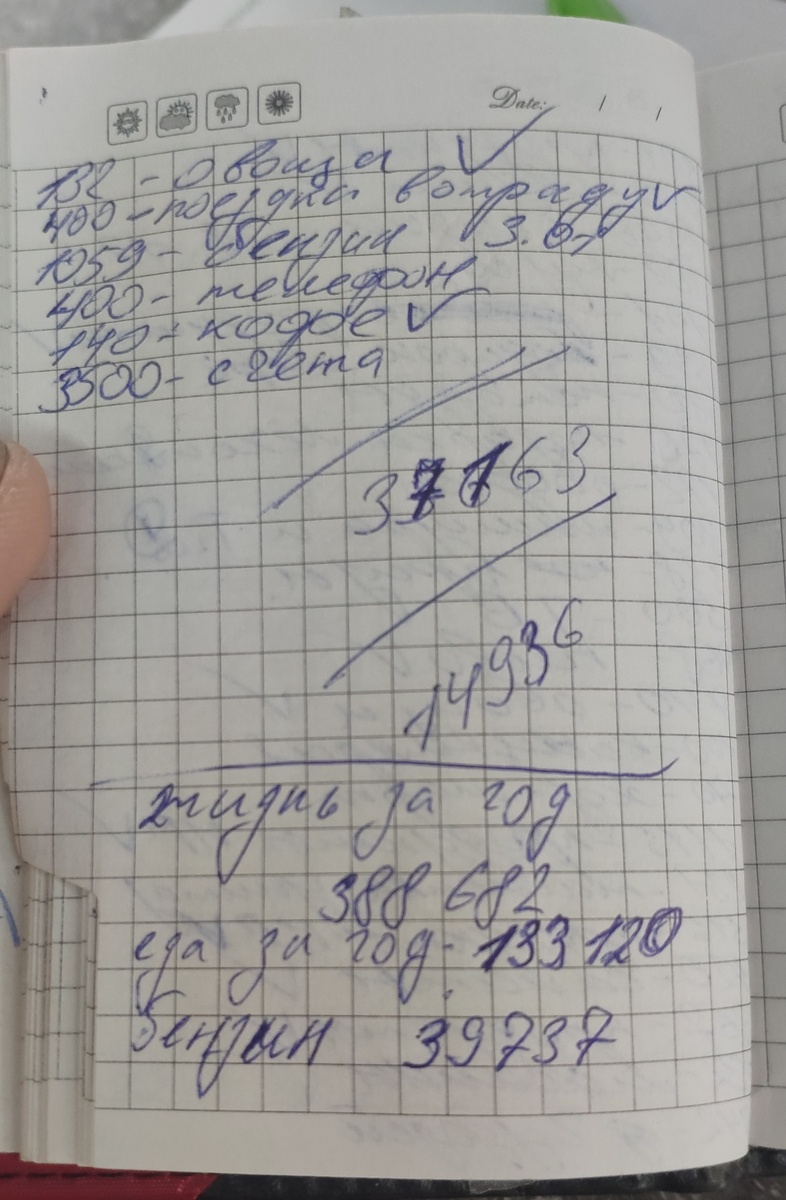 Date: / /
132 - овоща ✓
400 - поездка в ограду ✓
1059 - бензин
400 - телефон
140 - кофе ✓
3500 - счета
37163
14936
жизнь за год
388 682
еда за год - 133 120
бензин 39737